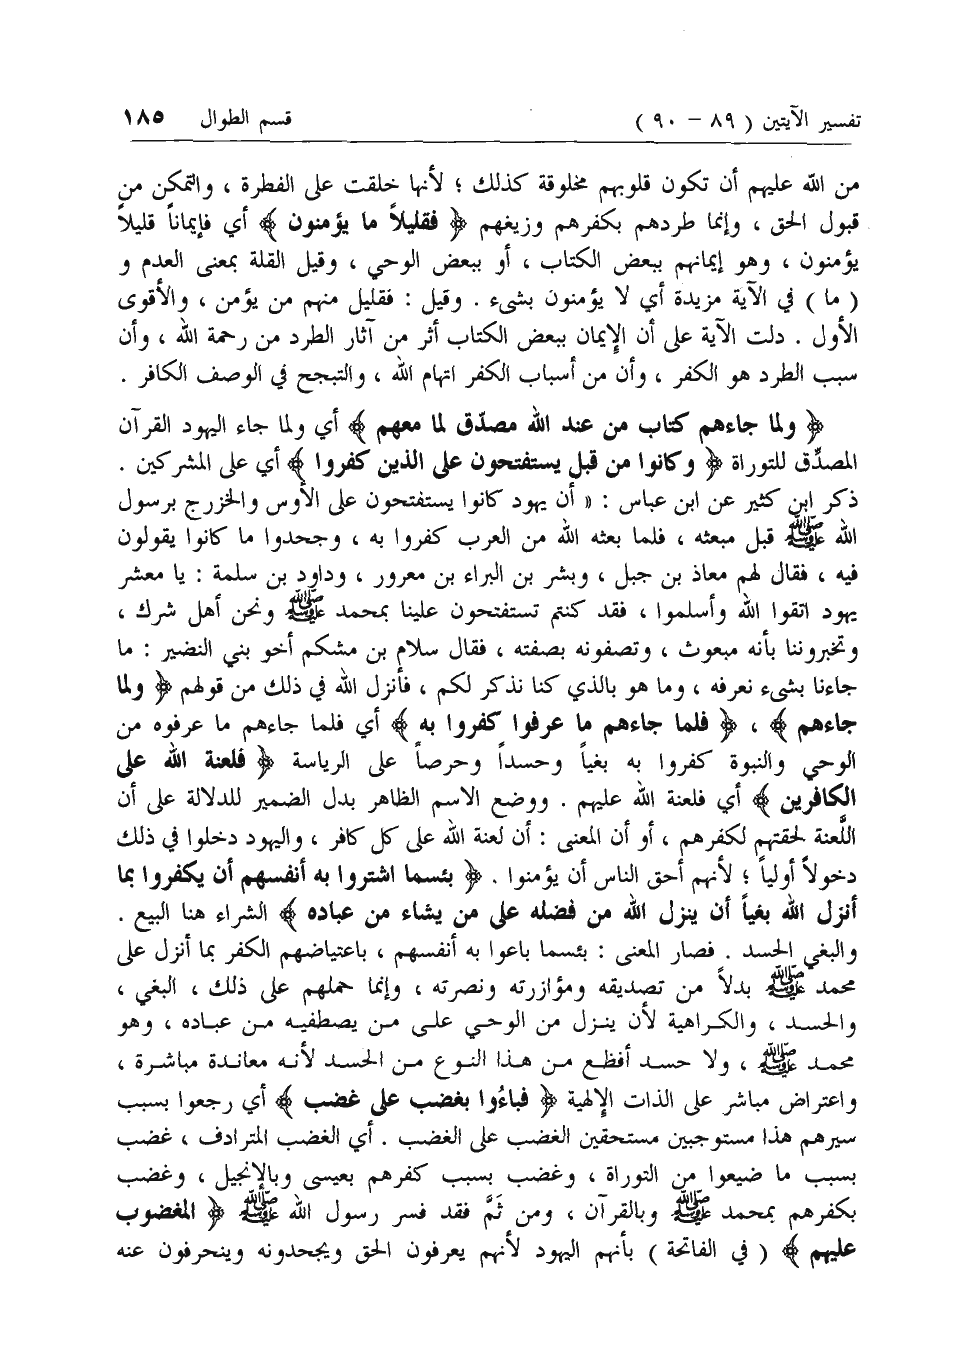 تفسير الآيتين ( ٨٩ – ٩٠ ) قسم الطوال ١٨٥
من الله عليهم أن تكون قلوبهم مخلوقة كذلك ؛ لأنها خلقت على الفطرة ، والتمكن من
قبول الحق ، وإنما طردهم بكفرهم وزيغهم ﴿ فقليلاً ما يؤمنون ﴾ أي فإيماناً قليلاً
يؤمنون ، وهو إيمانهم ببعض الكتاب ، أو ببعض الوحي ، وقيل القلة بمعنى العدم و
( ما ) في الآية مزيدة أي لا يؤمنون بشيء . وقيل : فقليل منهم من يؤمن ، والأقوى
الأول . دلت الآية على أن الإيمان ببعض الكتاب أثر من آثار الطرد من رحمة الله ، وأن
سبب الطرد هو الكفر ، وأن من أسباب الكفر اتهام الله ، والتبجح في الوصف الكافر .
﴿ ولما جاءهم كتاب من عند الله مصدّق لما معهم ﴾ أي ولما جاء اليهود القرآن
المصدِّق للتوراة ﴿ وكانوا من قبل يستفتحون على الذين كفروا ﴾ أي على المشركين .
ذكر ابن كثير عن ابن عباس : « أن يهود كانوا يستفتحون على الأوس والخزرج برسول
الله ﷺ قبل مبعثه ، فلما بعثه الله من العرب كفروا به ، وجحدوا ما كانوا يقولون
فيه ، فقال لهم معاذ بن جبل ، وبشر بن البراء بن معرور ، وداود بن سلمة : يا معشر
يهود اتقوا الله وأسلموا ، فقد كنتم تستفتحون علينا بمحمد ﷺ ونحن أهل شرك ،
وتخبروننا بأنه مبعوث ، وتصفونه بصفته ، فقال سلام بن مشكم أخو بني النضير : ما
جاءنا بشيء نعرفه ، وما هو بالذي كنا نذكر لكم ، فأنزل الله في ذلك من قولهم ﴿ ولما
جاءهم ﴾ ، ﴿ فلما جاءهم ما عرفوا كفروا به ﴾ أي فلما جاءهم ما عرفوه من
الوحي والنبوة كفروا به بغياً وحسداً وحرصاً على الرياسة ﴿ فلعنة الله على
الكافرين ﴾ أي فلعنة الله عليهم . ووضع الاسم الظاهر بدل الضمير للدلالة على أن
اللَّعنة لحقتهم لكفرهم ، أو أن المعنى : أن لعنة الله على كل كافر ، واليهود دخلوا في ذلك
دخولاً أولياً ؛ لأنهم أحق الناس أن يؤمنوا . ﴿ بئسما اشتروا به أنفسهم أن يكفروا بما
أنزل الله بغياً أن ينزل الله من فضله على من يشاء من عباده ﴾ الشراء هنا البيع .
والبغي الحسد . فصار المعنى : بئسما باعوا به أنفسهم ، باعتياضهم الكفر بما أنزل على
محمد ﷺ بدلاً من تصديقه ومؤازرته ونصرته ، وإنما حملهم على ذلك ، البغي ،
والحسد ، والكراهية لأن ينزل من الوحي على من يصطفيه من عباده ، وهو
محمد ﷺ ، ولا حسد أفظع من هذا النوع من الحسد لأنه معاندة مباشرة ،
واعتراض مباشر على الذات الإلهية ﴿ فباءُوا بغضب على غضب ﴾ أي رجعوا بسبب
سيرهم هذا مستوجبين مستحقين الغضب على الغضب . أي الغضب المترادف ، غضب
بسبب ما ضيعوا من التوراة ، وغضب بسبب كفرهم بعيسى وبالإنجيل ، وغضب
بكفرهم بمحمد ﷺ وبالقرآن ، ومن ثَمَّ فقد فسر رسول الله ﷺ ﴿ المغضوب
عليهم ﴾ ( في الفاتحة ) بأنهم اليهود لأنهم يعرفون الحق ويجحدونه وينحرفون عنه